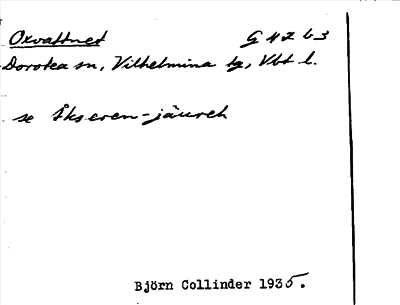 Oxvattnet G 42 b 3
Dorotea sn, Vilhelmina tg, Vbt l.
se Åkseren-jäureh
Björn Collinder 1935.